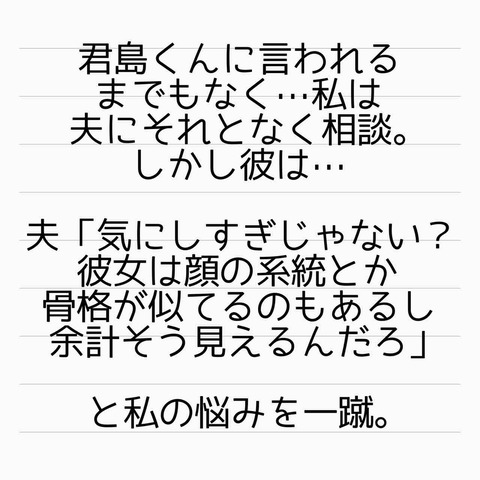 君島くんに言われる
までもなく…私は
夫にそれとなく相談。
しかし彼は…
夫「気にしすぎじゃない？
彼女は顔の系統とか
骨格が似てるのもあるし
余計そう見えるんだろ」
と私の悩みを一蹴。